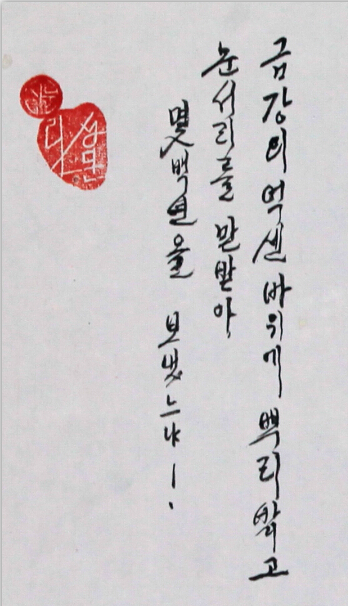 금강의 억센 바위에 뿌리 박고
눈서리를 맏받아
몇백년을 보냈느냐!